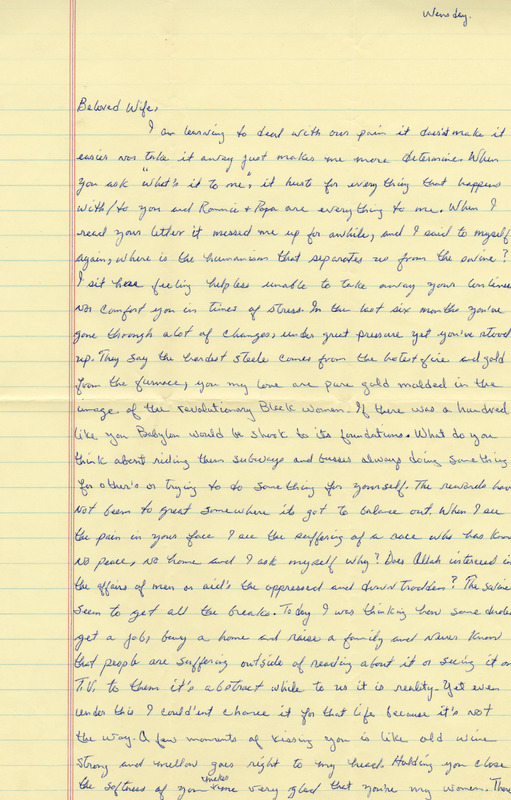 Wensday.
Beloved Wife,
I am learning to deal with our pain it dosn't make it
easier nor take it away just makes me more determine. When
you ask "what's it to me", it hurts for everything that happens
with/to you and Ronnie + Papa are everything to me. When I
read your letter it messed me up for awhile, and I said to myself
again, where is the humanism that separates us from the swine?
I sit here feeling helpless unable to take away your
nor comfort you in times of stress. In the last six months you've
gone through alot of changes, under great pressure yet you've stood
up. They say the hardest steele comes from the hotest fire and gold
from the furnace, you my love are pure gold molded in the
image of the revolutionary Black Women. If there was a hundred
like you Babylon would be shook to its foundations. What do you
think about riding them subways and busses always doing something
for other's or trying to do something for yourself. The rewards have
not been to great somewhere its got to balance out. When I see
the pain in your face I see the suffering of a race who has know
no peace, no home and I ask myself why? Does Allah intereed in
the affairs of men or aid's the oppressed and down trodden? The swine
seem to get all the breaks. Today I was thinking how some dudes
get a job, buy a home and raise a family and never know
that people are suffering outside of reading about it or seeing it on
T.V. to them it's abstract while to us it is reality. Yet even
under this I could'ent chance it for that life because it's not
the way. A few moments of kissing you is like old wine
strong and mellow goes right to my head. Holding you close
the softness of you makes me very glad that you're my women. There